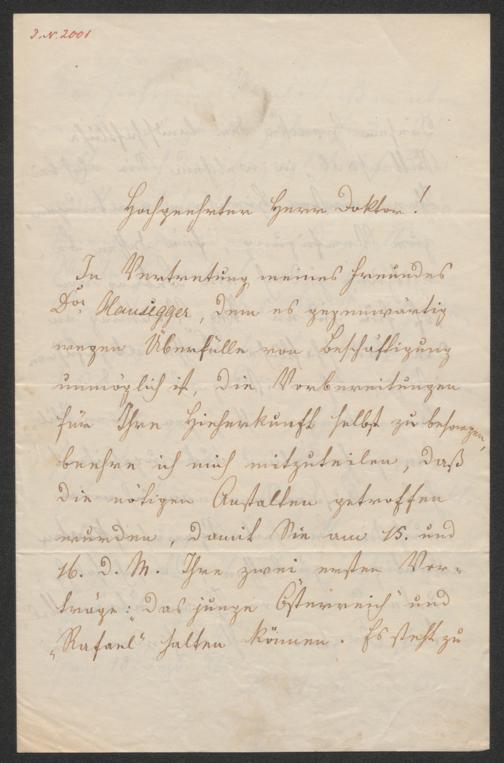 J.N. 2001
Hochgeehrter Herr Doktor!
In Vertretung meines Freundes
Dor Hausegger, dem es gegenwärtig
wegen Überfülle von Beschäftigung
unmöglich ist, die Vorbereitungen
für Ihre Hieherkunft selbst zu besorgen,
beehre ich mich mitzuteilen, daß
die nötigen Anstalten getroffen
wurden, damit Sie am 15. und
16. d. M. Ihre zwei ersten Vor-
träge: „Das junge Österreich" und
„Rafael" halten können. Es steht zu